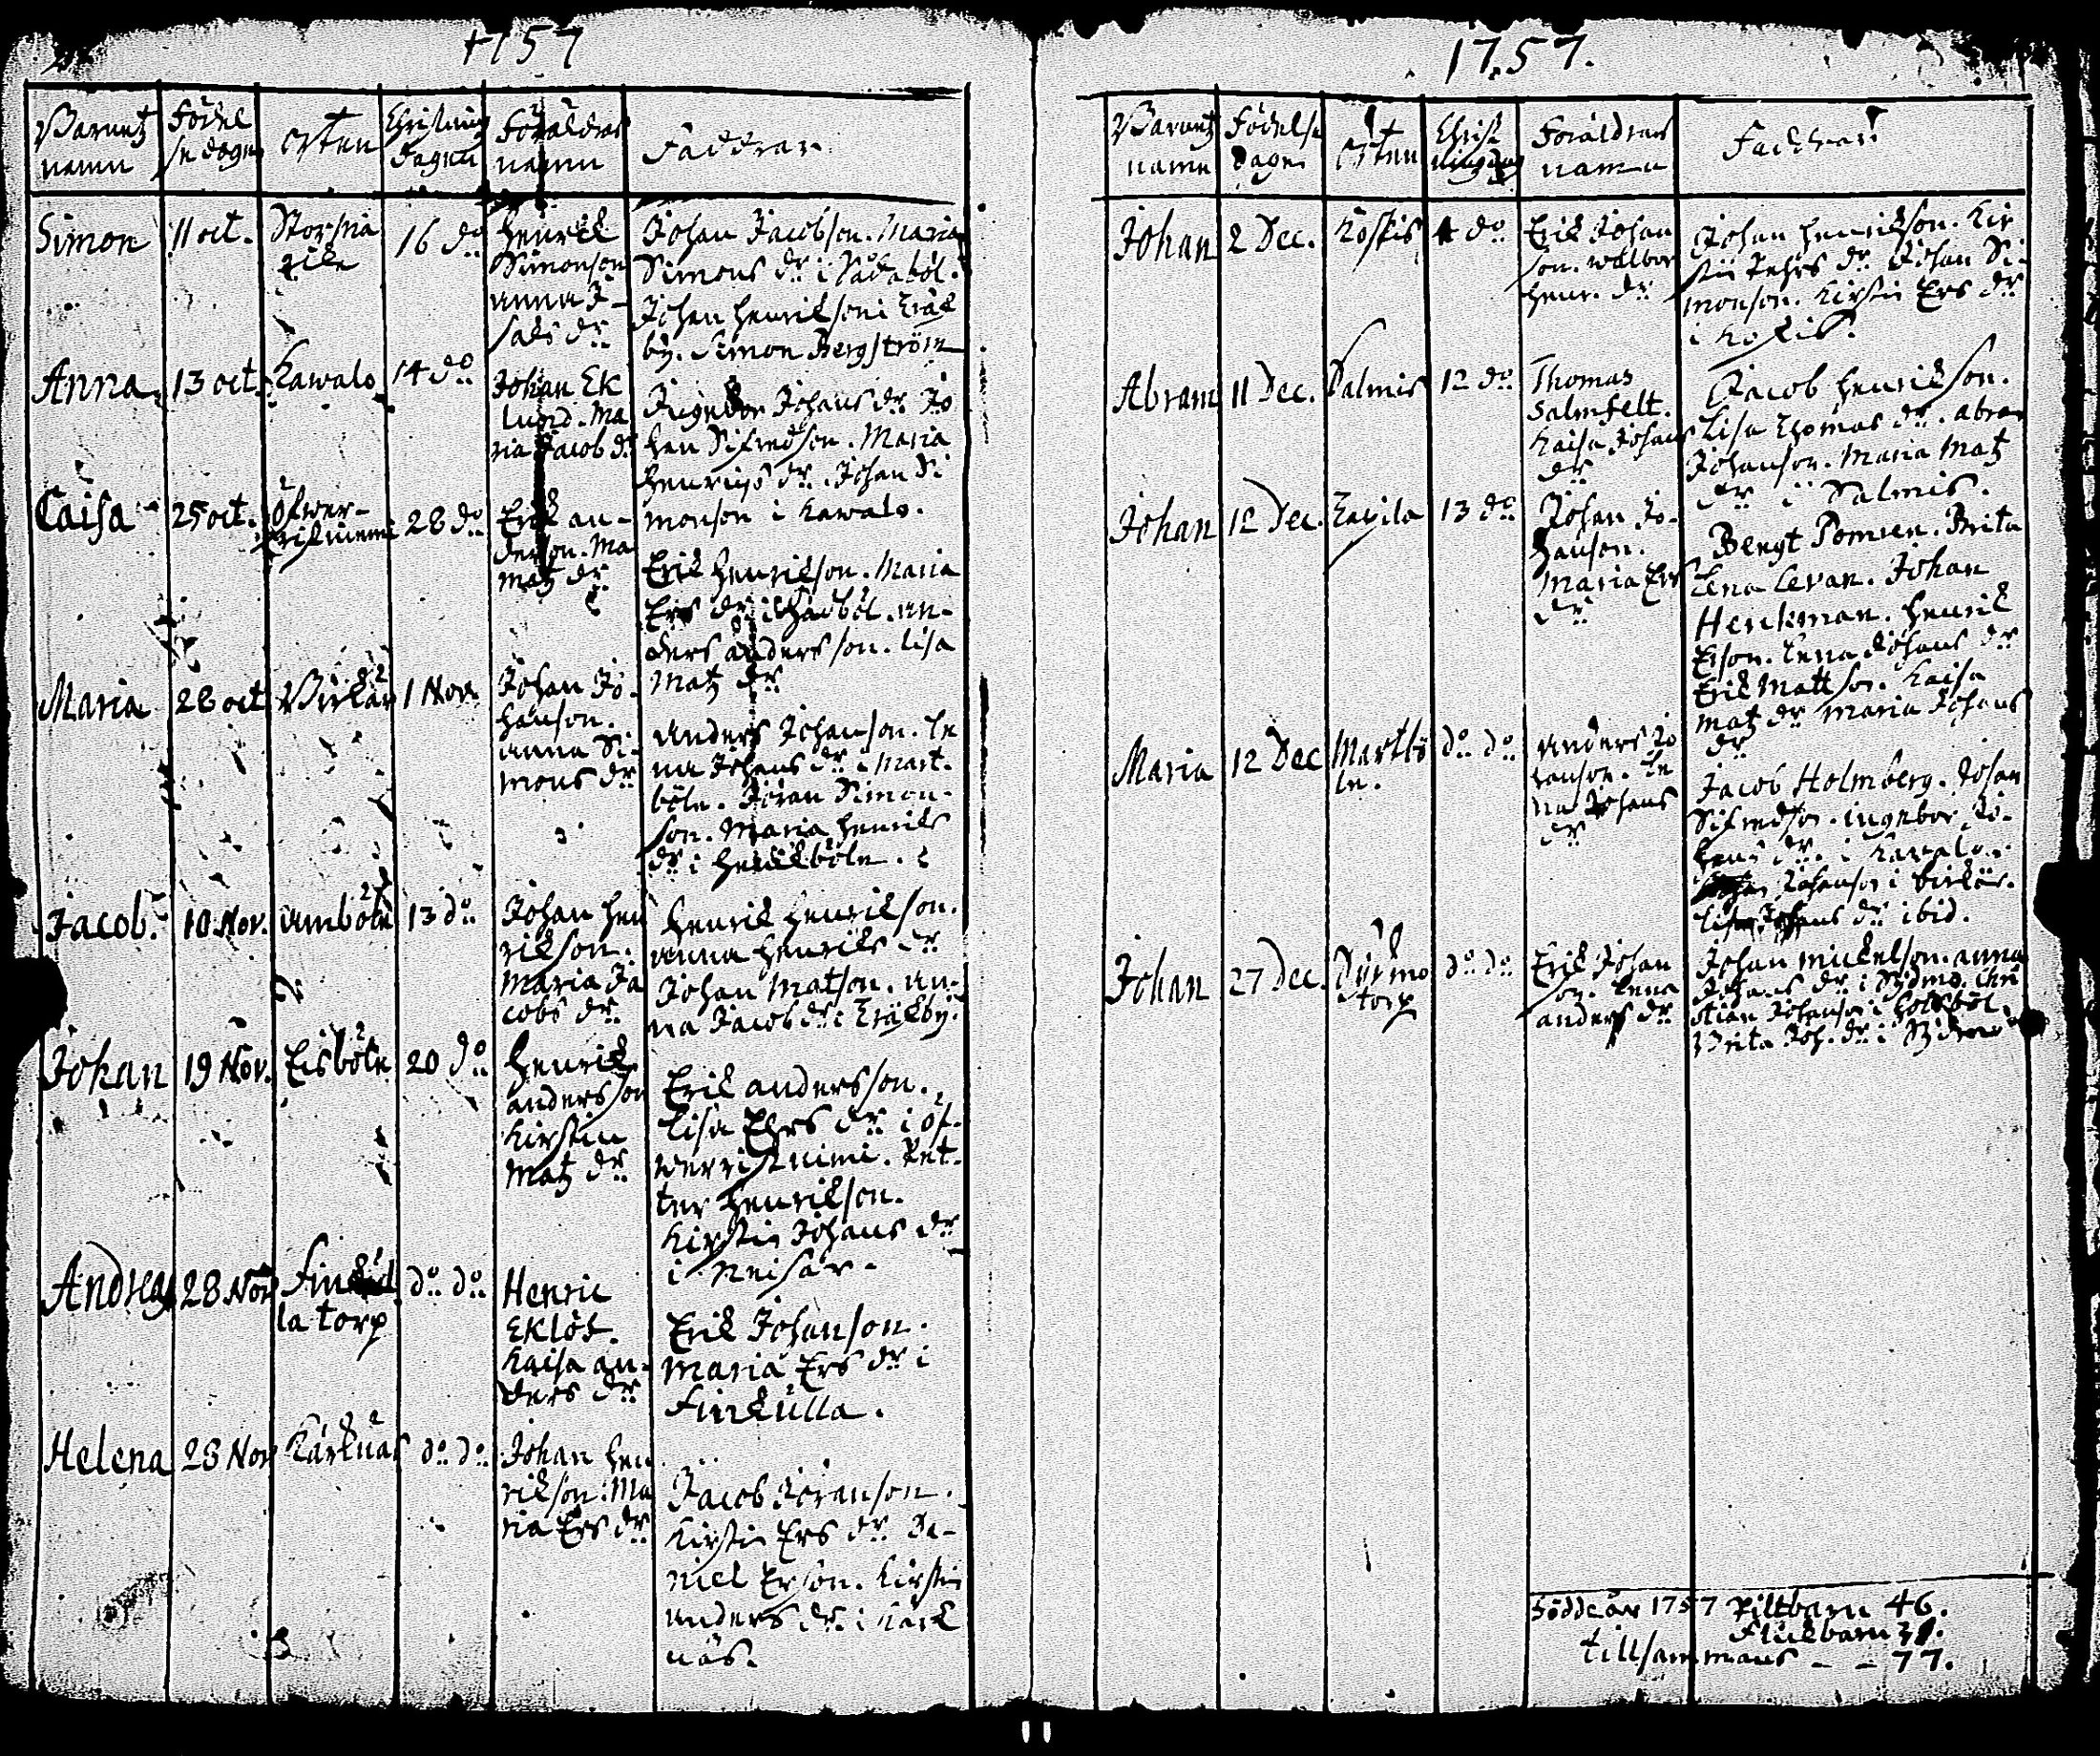 1757
Barnetz namn
Födelse dagen
orten
Christnings dagen
Föräldras namn
Faddrar
Simon
11 oct.
16 do
Henrik
Simonson
anna I-
saks dr
Johan Jacobson. Maria
Simons dr i
Johan Henrikson i Träsk
by. Simon Bergström
Anna
13 oct.
Kawalo
14 do
Johan Ek
lund. Ma
ria Jacob dr
Ingebor Johans dr Jo
han Sifredson. Maria
Henrichs dr. Johan Si
monson i Kawalo.
Caisa
25 oct.
Öfwer-
28 do
Erik an-
derson. Ma
matz dr
Erik Henrikson. Maria
Ers dr i
an-
ders andersson. Lisa
Matz dr
Maria
28 oct
Wirkär
1 Nov.
Johan Jo-
hanson.
anna Si-
mons dr
Anders Johanson. Le
na Johans dr i Mart-
böle. Jöran Simon-
son. Maria Henriks
dr i Henrikböle.
Jacob.
10 Nov.
amböle
13 do
Johan Hen
rikson.
Maria Ja
cobs dr
Henrik Henrikson.
anna Henriks dr
Johan Matson. An-
na Jacob dr i Träskby.
Johan
19 Nov.
Eisböle
20 do
Henrik
andersson
Kirstin
Matz dr
Erik andersson.
Lisa Ehrs dr i öf-
Pet-
ter Henrikson.
Kirstin Johans dr
i
Andreas
28 Nov
la torp
do do
Henric
Eklöf.
Kaisa an-
ders dr
Erik Johanson.
Maria Ers dr i
Finkulla.
Helena
28 Nov
Kärknäs
do do
Johan Hen
rikson. Ma
ria Ers dr
Jacob Jöranson.
Kirstin Ers dr Da-
niel Erson. Kirstin
anders dr i Kärk
näs.
1757.
Barnetz namn
Födelse dagen
orten
Christningdag
Föräldras namn
Faddrar
Johan
2 Dec.
Koskis
4 do
Erik Johan
son. Walbor
Henr. dr
Johan Henrikson. Kir
stin Pehrs dr Johan Si-
monson. Kirstin Ers dr
i Koskis.
Abram
11 Dec.
Salmis
12 do
Thomas
Salmfelt.
Kaisa Johans
dr
Jacob Henrikson.
Lisa Thomas dr. Abram
Johanson. Maria Matz
dr i Salmis.
Johan
12 Dec.
13 do
Johan Jo-
hanson.
Maria Ers
dr
Bengt Pomren. Brita
Lena Levan. Johan
Henkman. Henrik
Erson. Lena Johans dr
Erik Mattson. Kaisa
Matz dr Maria Johans
dr
Maria
12 Dec
Martbö
le.
do do
Anders Jo
hanson. Le
na Johans
dr
Jacob Holmberg. Johan
Sifredson. ingebor Jo-
hans dr. i Kawalo.
Johanson i Birkär.
Lisa Johans dr ibid.
Johan
27 Dec.
torp
do do
Erik Johan
son. Lena
anders dr
Johan Mickelson. anna
Johans dr i
Johanson i
Brita Joh. dr i
Födde år 1757 Piltbarn 46.
Flickbarn 31.
tillsammans - - 77.